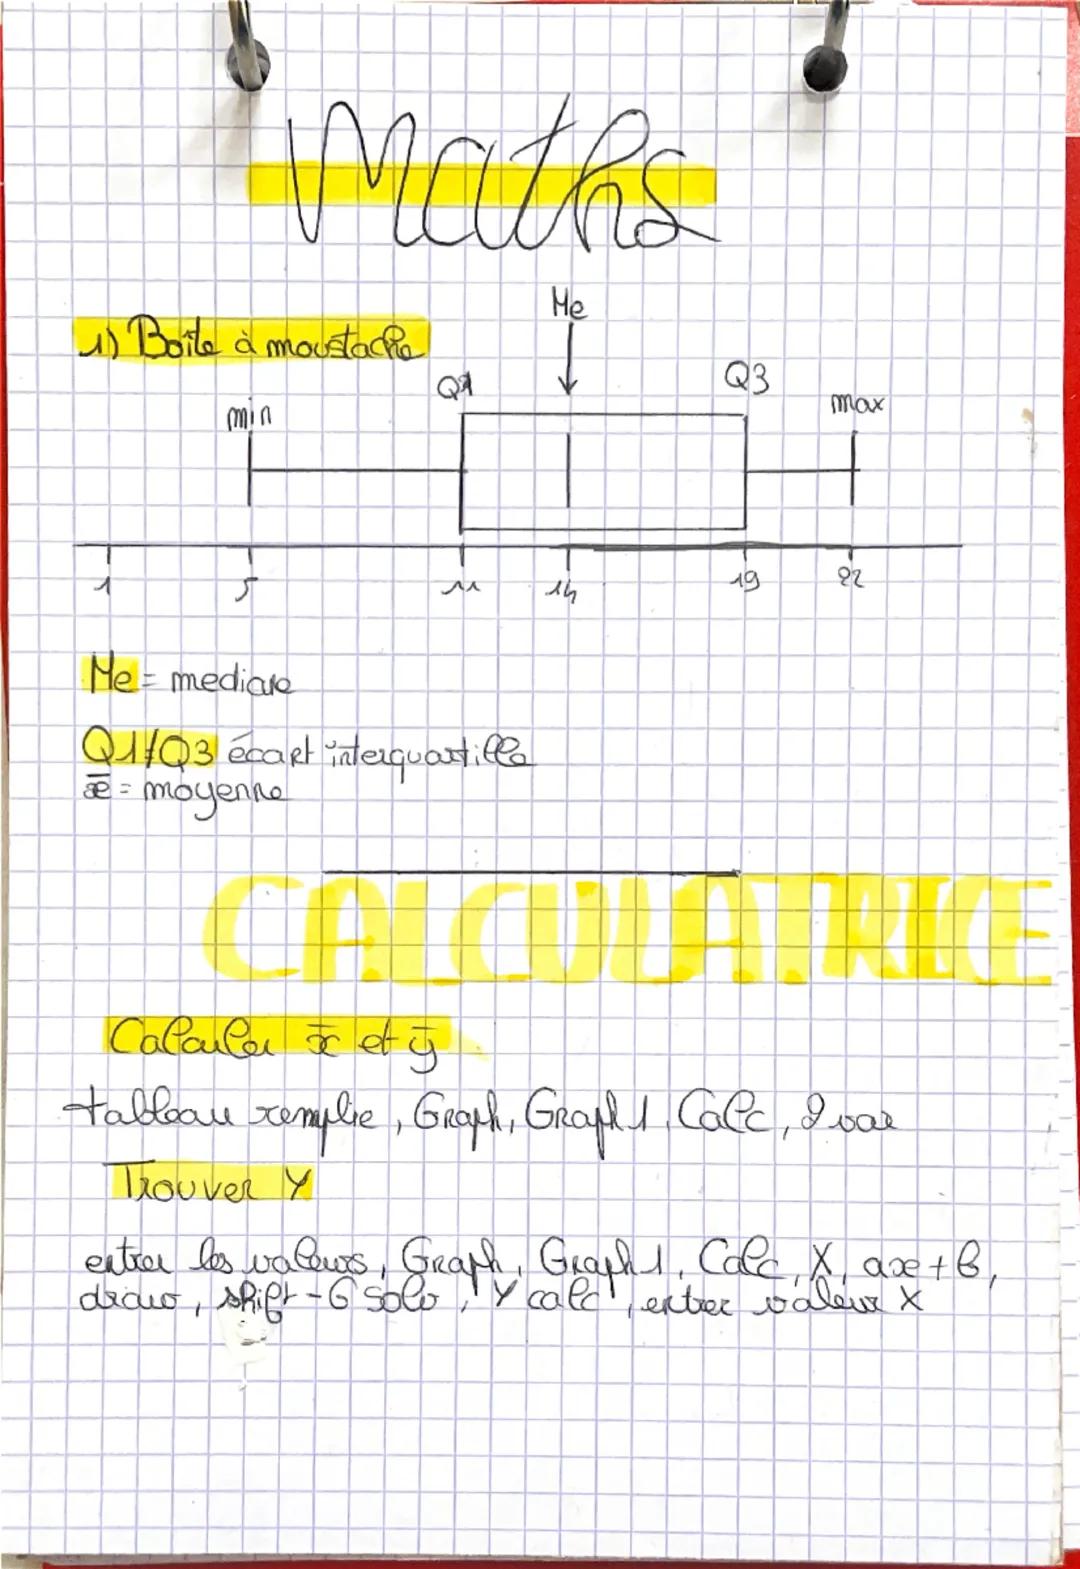 Maths
Me
1) Boîte à moustache
Q1
Q3
min
max
1 5 11 14 19 22
Me = mediane
Q1/Q3 écart interquartille
x̄ = moyenne
CALCULATRICE
Calculer x̄ et ȳ
tableau remplie, Graph, Graph 1, Calc, 2 var
Trouver Y
entrer les valeurs, Graph, Graph 1, Calc, X, ax+b,
draw, shift - G solv, "Y calc", entrer valeur X